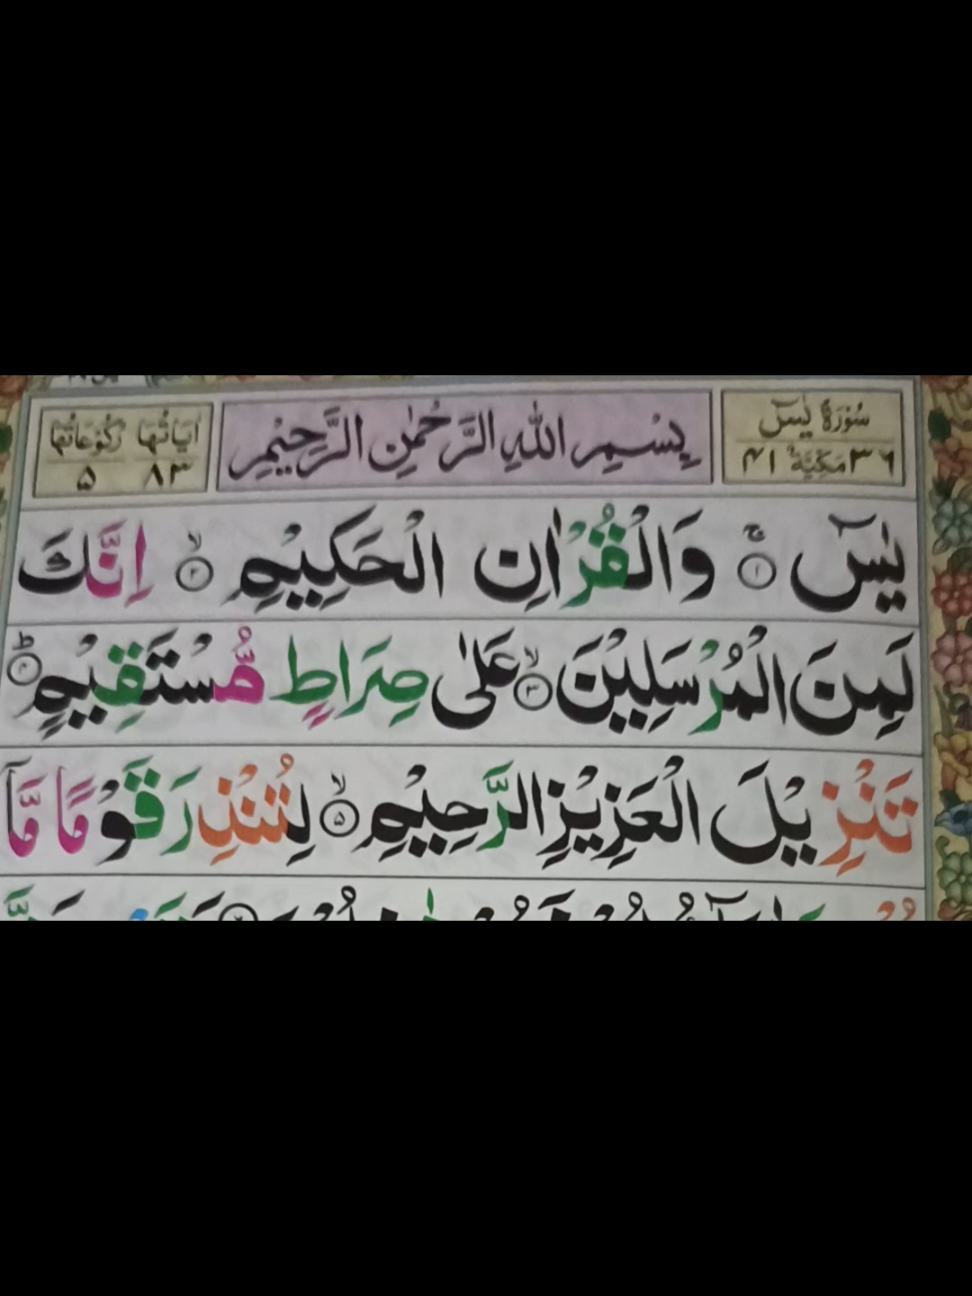 سُوْرَةُ يٰسٓ
٣٦ مَكِّيَّةٌ ٤١
بِسْمِ اللّٰهِ الرَّحْمٰنِ الرَّحِيْمِ
اٰيَاتُهَا ٨٣
رُكُوْعَاتُهَا ٥
يٰسٓ ۚ ﴿١﴾ وَالْقُرْاٰنِ الْحَكِيْمِ ۙ ﴿٢﴾ اِنَّكَ
لَمِنَ الْمُرْسَلِيْنَ ۙ ﴿٣﴾ عَلٰى صِرَاطٍ مُّسْتَقِيْمٍ ؕ
تَنْزِيْلَ الْعَزِيْزِ الرَّحِيْمِ ۙ ﴿٥﴾ لِتُنْذِرَ قَوْمًا مَّاۤ